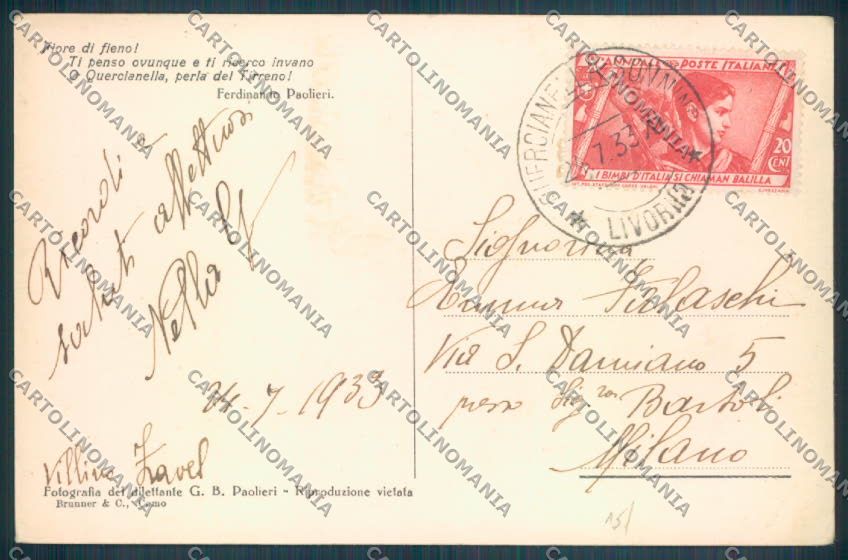 Fiore di fieno!
Ti penso ovunque e ti ricerco invano
O Quercianella, perla del Tirreno!
Ferdinando Paolieri.
Ricordi e
saluti affettuosi
Nella
24-7-1933
Villino
Fotografia del dilettante G. B. Paolieri - Riproduzione vietata
Brunner & C., Como
POSTE ITALIANE
20
CENT
I BIMBI D'ITALIA SI CHIAMAN BALILLA
QUERCIANELLA SONNINO
7.33
LIVORNO
Signorina
Via S. Damiano 5
presso Sig.ra Bartoli
Milano
CARTOLINOMANIA